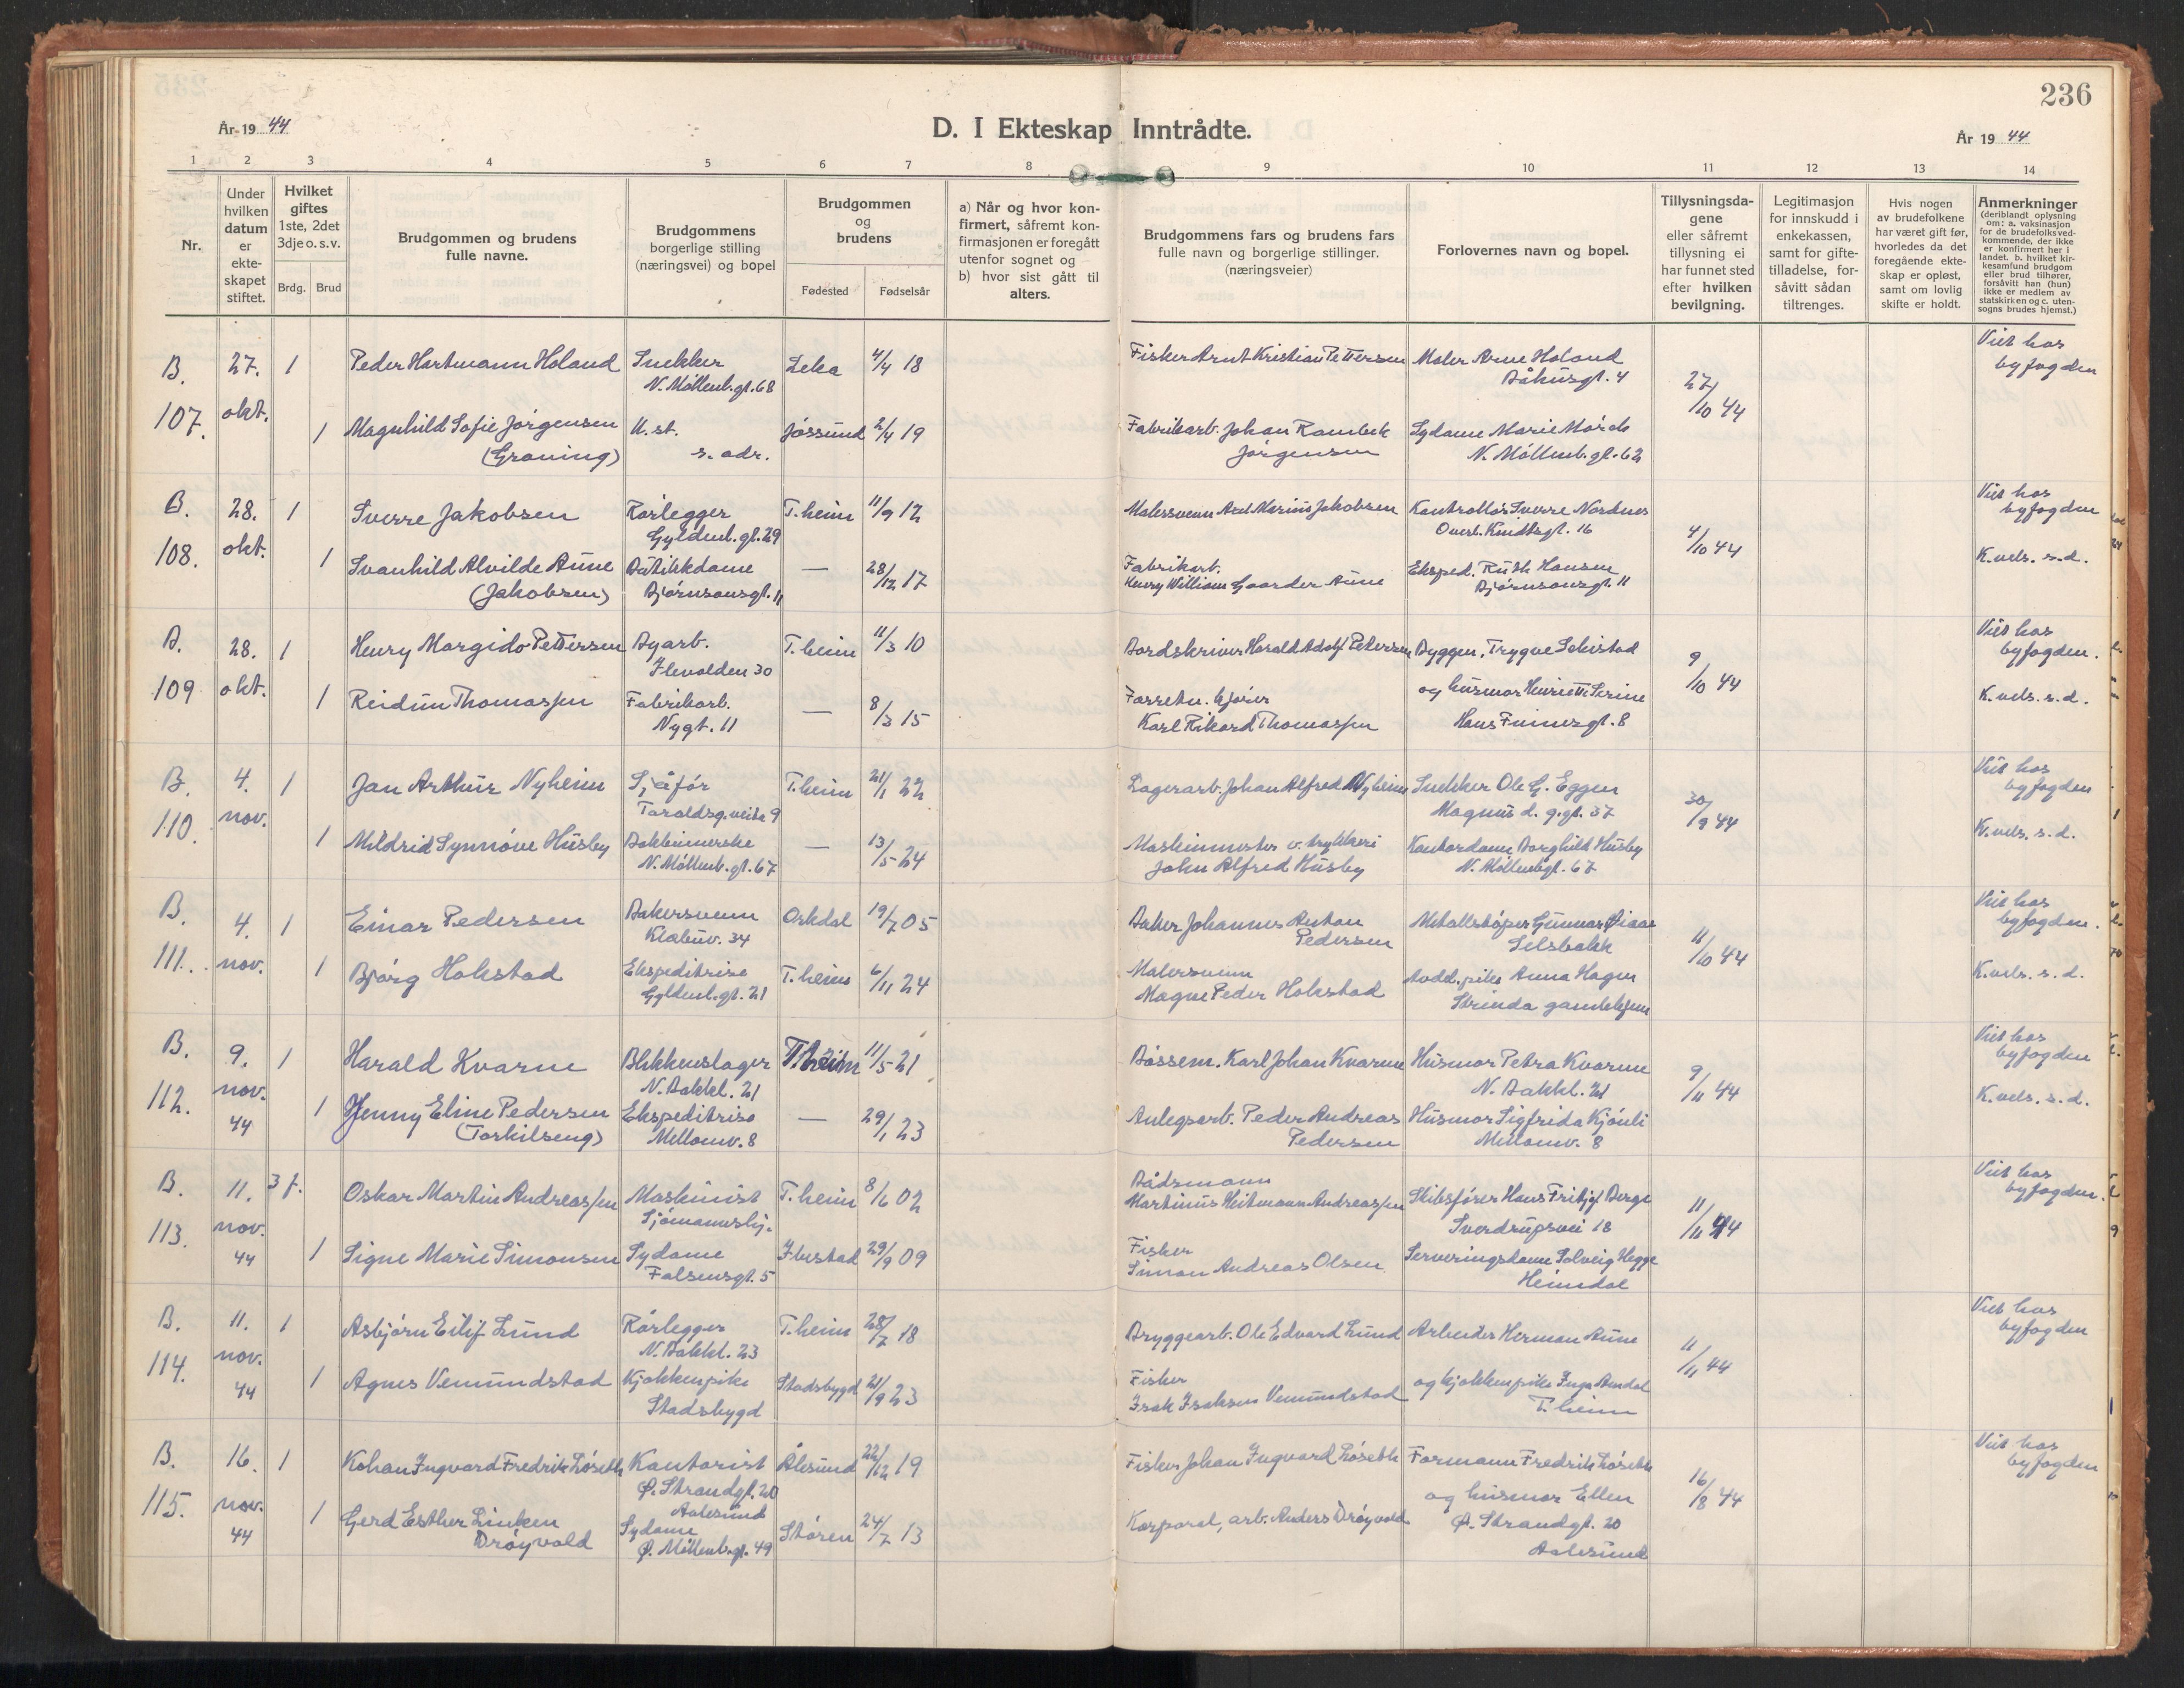 236
År 19 44
D. I Ekteskap Inntrådte.
År 19 44
1 2 3 4 5 6 7 8 9 10 11 12 13 14
Nr.
Under hvilken datum er ekteskapet stiftet.
Hvilket giftes 1ste, 2det 3dje o. s. v.
Brdg. Brud
Brudgommen og brudens fulle navne.
Brudgommens borgerlige stilling (næringsvei) og bopel
Brudgommen og brudens
Fødested Fødselsår
a) Når og hvor konfirmert, såfremt konfirmasjonen er foregått utenfor sognet og
b) hvor sist gått til alters.
Brudgommens fars og brudens fars fulle navn og borgerlige stillinger. (næringsveier)
Forlovernes navn og bopel.
Tillysningsdagene eller såfremt tillysning ei har funnet sted efter hvilken bevilgning.
Legitimasjon for innskudd i enkekassen, samt for giftetilladelse, forsåvitt sådan tiltrenges.
Hvis nogen av brudefolkene har været gift før, hvorledes da det foregående ekteskap er opløst, samt om lovlig skifte er holdt.
Anmerkninger (deriblandt oplysning om: a. vaksinasjon for de brudefolks vedkommende, der ikke er konfirmert her i landet. b. hvilket kirkesamfund brudgom eller brud tilhører, forsåvitt han (hun) ikke er medlem av statskirken og c. utensogns brudes hjemst.)
B. 27. 1 Peder Hartmann Holand Snekker Leka 4/4 18 Fisker Arnt Kristian Pettersen Maler Arne Holand Viet hos
N. Møllenb. gt. 68 gt. 4 27/10 44 byfogden
107. okt. 1 Magnhild Sofie Jørgensen U. st. Jøssund 2/4 19 Fabrikarb. Johan Rambek Sydame Marie
(Graning) s. adr. Jørgensen N. Møllenb. gt. 62
B. 28. 1 Sverre Jakobsen Rørlegger T.heim 11/9 12 Malersvenn Axel Marius Jakobsen Kontrollør Sverre Nordnes Viet hos
Gyldenl. gt. 29 Overl. Kindtsgt. 16 4/10 44 byfogden
108. okt. 1 Svanhild Alvilde Aune Butikkdame — 28/12 17 Fabrikarb. Eksped. Ruth Hansen K. vels. s. d.
(Jakobsen) Bjørnsonsgt. 11 Henry William Gaarder Aune Bjørnsonsgt. 11
B. 28. 1 Henry Margido Pettersen Byarb. T.heim 11/3 10 Bordskriver Harald Adolf Pettersen Byggm. Trygve Selistad Viet hos
Ilevolden 30 9/10 44 byfogden.
109 okt. 1 Reidun Thomassen Fabrikarb. — 8/3 15 Forretn. bestyrer og husmor K. vels. s. d.
Nygt. 11 Karl Rikard Thomassen Hans Finnesgt. 8
B. 4. 1 Jan Arthur Nyheim Sjåfør T.heim 21/1 22 Lagerarb. Johan Alfred Nyheim Snekker Ole G. Eggen Viet hos
Taraldsg. veita 9 Magnus d. g. gt. 37 30/9 44 byfogden
110. nov. 1 Mildrid Synnøve Husby — 13/5 24 Maskinmester v. trykkeri Kontordame Borghild Husby K. vels. s. d.
N. Møllenb. gt. 67 John Alfred Husby N. Møllenbgt. 67
B. 4. 1 Einar Pedersen Bakersvenn Orkdal 19/7 05 Baker Johannes Anton Metallstøper Gunnar Viet hos
Klæbuv. 34 Pedersen Selsbakk 11/10 44 byfogden.
111. nov. 1 Bjørg Hokstad Ekspeditrise T.heim 6/11 24 Malersvenn Anna Hagen K. vels. s. d.
Gyldenl. gt. 21 Magne Peder Hokstad Strinda gamlehjem
B. 9. 1 Harald Kvarne Blikkenslager T.heim 11/5 21 Bøssem. Karl Johan Kvarne Husmor Petra Kvarne Viet hos
N. Bakkl. 21 N. Bakkl. 21 9/11 44 byfogden
112. nov. 1 Jenny Eline Pedersen Ekspeditrise — 29/1 23 Anlegsarb. Peder Andreas Husmor Sigfrida Kjønli K. vels. s. d.
44 (Torkilseng) Mellomv. 8 Pedersen Mellomv. 8
B. 11. 3 f. Oskar Martin Andreassen Maskinist T.heim 8/6 02 Bådsmann Viet hos
Sjømannshj. Martinus Heitmann Andreassen Skibsfører Hans Fritjof Berge 11/11 44 byfogden.
113. nov. Sverdrupsvei 18
44 1 Signe Marie Simonsen Sydame Ibestad 29/9 09 Fisker Serveringsdame Solveig Hegge
Falsensgt. 5 Simon Andreas Olsen Heimdal
B. 11. 1 Asbjørn Eilif Lund Rørlegger T.heim 28/7 18 Bryggearb. Ole Edvard Lund Arbeider Herman Aune Viet hos
N. Bakkl. 23 11/11 44 byfogden
114. nov. 44 1 Agnes Vemundstad Kjøkkenpike Stadsbygd 21/9 23 Fisker og kjøkkenpike Inga
Stadsbygd Isak Isaksen Vemundstad T.heim
B. 16. 1 Kohan Ingvard Fredrik Løseth Kontorist Ålesund 22/12 19 Fisker Johan Ingvard Løseth Formann Fredrik Løseth Viet hos
Ø. Strandgt. 20 og husmor Ellen 16/8 44 byfogden
Aalesund
115. nov. 44 1 Gerd Esther Linken Sydame Støren 24/7 13 Korporal, arb. Anders Drøyvold Ø. Strandgt. 20
Drøyvold Ø. Møllenb. gt. 49 Aalesund